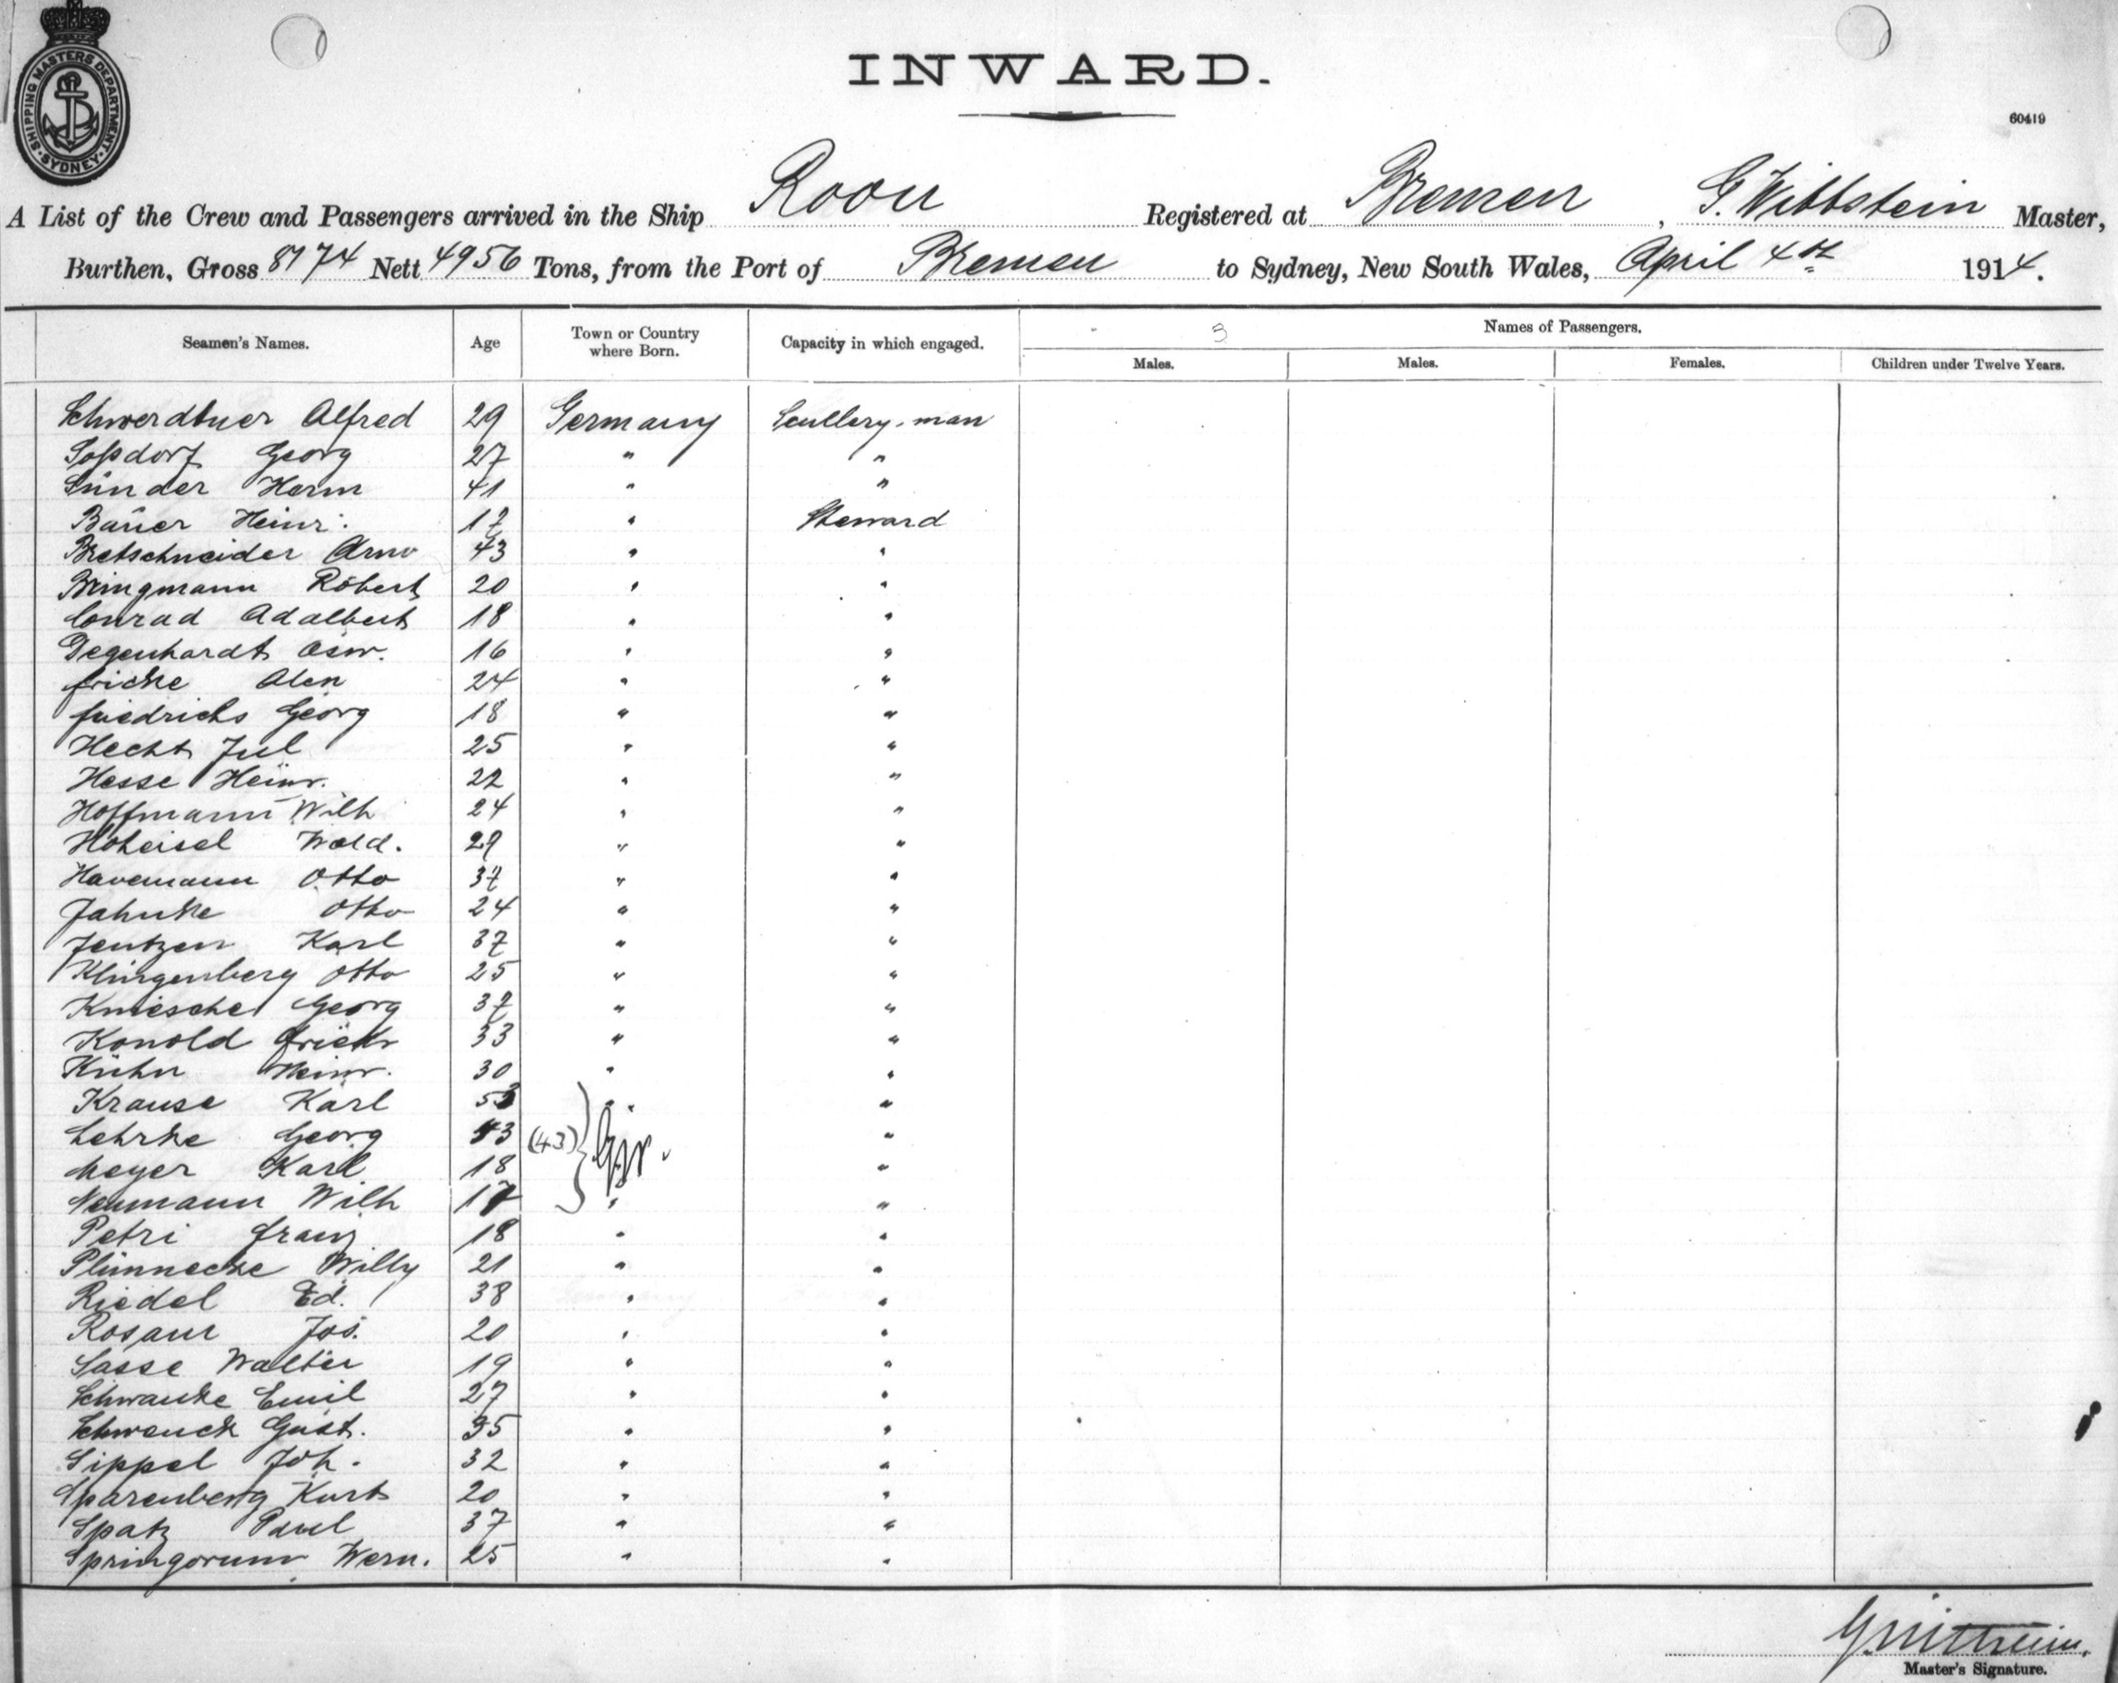 SHIPPING MASTERS DEPARTMENT · SYDNEY ·
INWARD.
60419
A List of the Crew and Passengers arrived in the Ship Roon Registered at Bremen, G. Wittstein Master,
Burthen, Gross 8174 Nett 4956 Tons, from the Port of Bremen to Sydney, New South Wales, April 4th 1914.
Seamen's Names. Age Town or Country where Born. Capacity in which engaged. Names of Passengers.
Males. Males. Females. Children under Twelve Years.
Schwerdtner Alfred 29 Germany Scullery-man
Soßdorf Georg 27 " "
Sünder Herm 41 " "
Bauer Heinr. 17 " Steward
Bretschneider Arno 43 " "
Bringmann Robert 20 " "
Conrad Adalbert 18 " "
Degenhardt Osw. 16 " "
Fricke Alex 24 " "
Friedrichs Georg 18 " "
Hecht Jul 25 " "
Hesse Heinr. 22 " "
Hoffmann Wilh 24 " "
Hoheisel Wold. 29 " "
Havemann Otto 37 " "
Jahnke Otto 24 " "
Jentzen Karl 37 " "
Klingenberg Otto 25 " "
Kniesche Georg 37 " "
Konold Friedr 33 " "
Kühn Heinr. 30 " "
Krause Karl 53 " "
Lehrke Georg 43 (43) "
Meyer Karl 18 "
Neumann Wilh 17 " "
Petri Franz 18 " "
Plünnecke Willy 21 " "
Riedel Ed. 38 " "
Rosaur Jos. 20 " "
Sasse Walter 19 " "
Schwanke Emil 27 " "
Schwenck Gust. 35 " "
Sippel Joh. 32 " "
Sparenberg Kurt 20 " "
Spatz Paul 37 " "
Springorum Wern. 25 " "
G. Wittstein
Master's Signature.